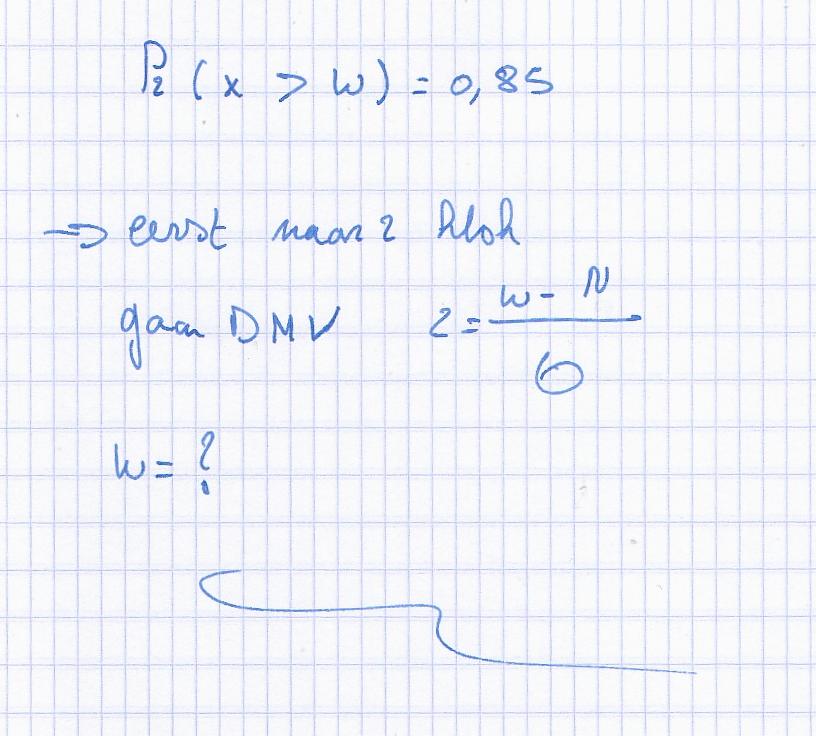 Pr (x > w) = 0,85
→ eerst naar z klok
gaan DMV z = (w - μ) / σ
w = ?